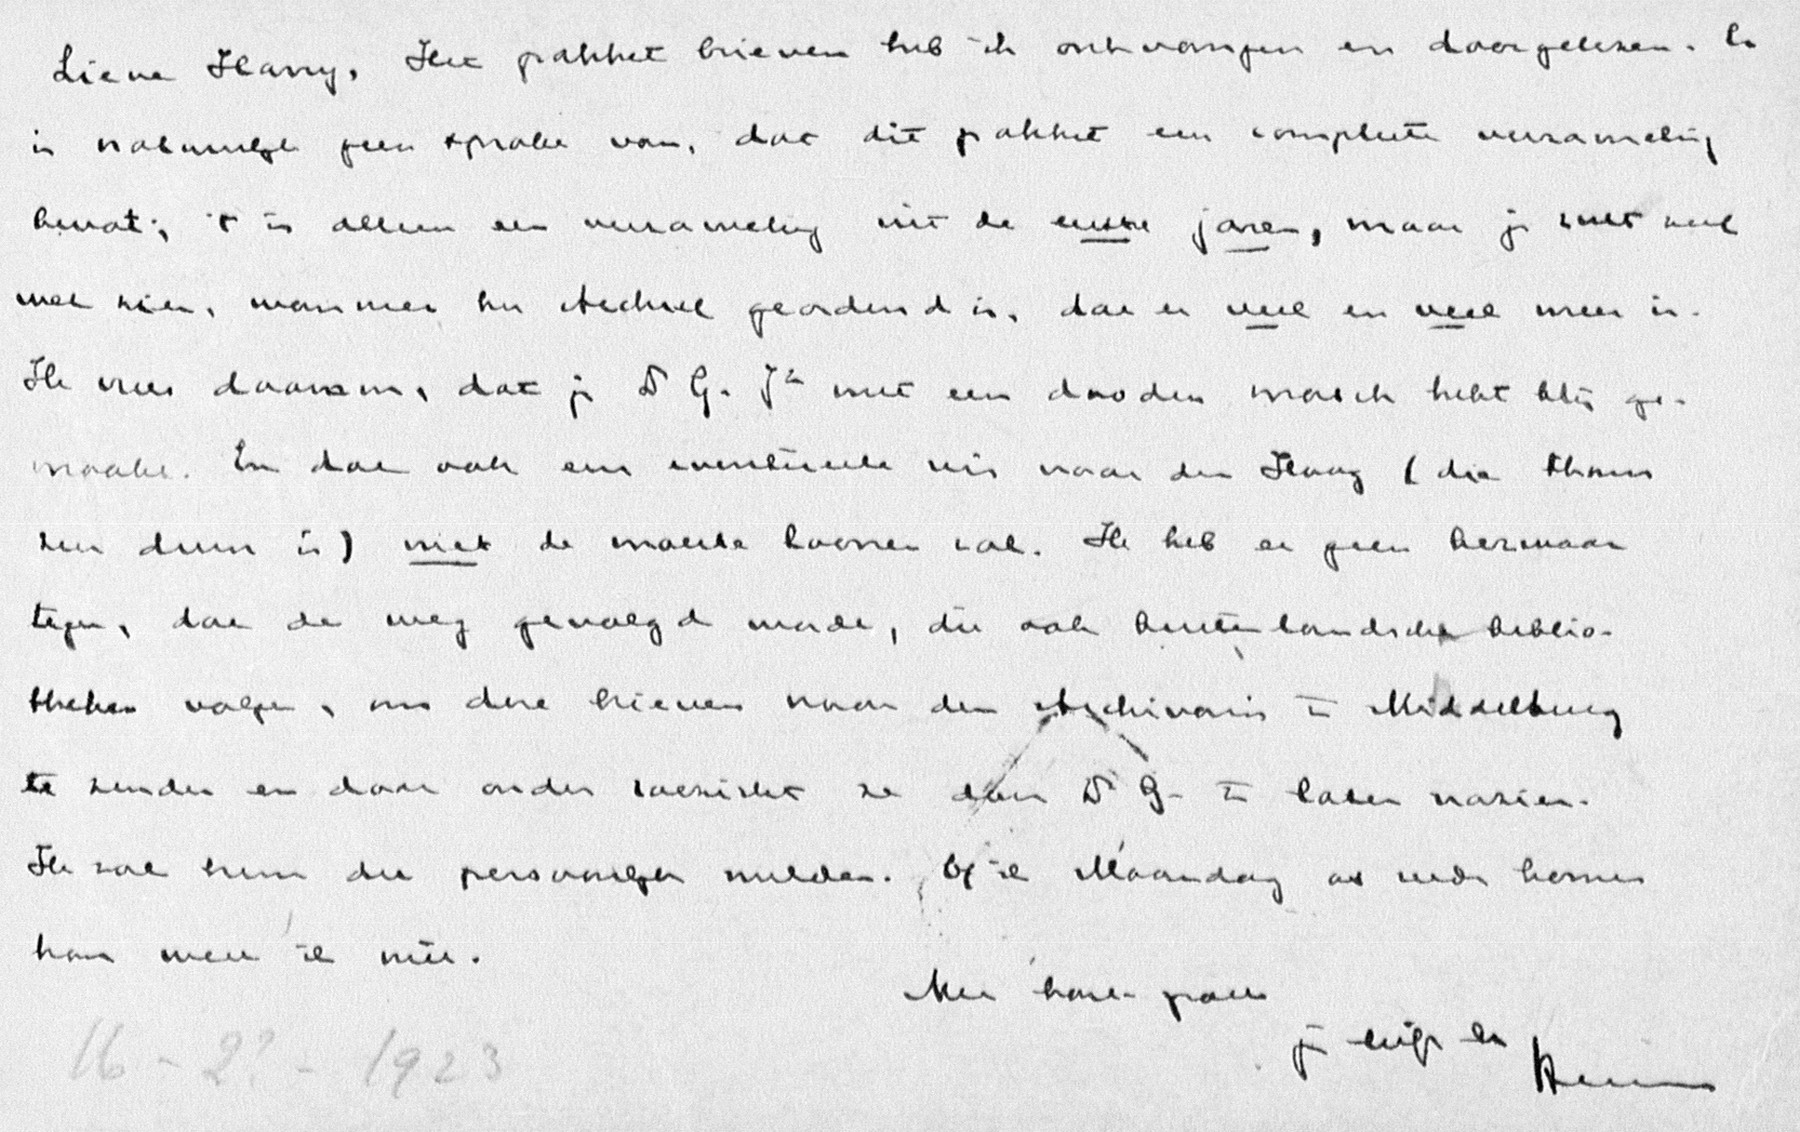 Lieve Harry, Het pakket brieven heb ik ontvangen en doorgelezen. Er
is natuurlijk geen sprake van, dat dit pakket een complete verzameling
bevat; 't is alleen een verzameling uit de eerste jaren, maar je zult wel
met zien, wanneer het Archief geordend is, dat er veel en veel meer is.
Ik vrees daarom, dat je Dr G. Jr met een dooden mosch hebt blij ge-
maakt. En dat ook een eventueele reis naar den Haag (die thans
zeer duur is) niet de moeite loonen zal. Ik heb er geen bezwaar
tegen, dat de weg gevolgd worde, die ook buitenlandsche biblio-
theken volgen, om deze brieven naar den Archivaris te Middelburg
te zenden en daar onder toezicht ze dan Dr G. te laten nazien.
Ik zal hem dit persoonlijk melden. Of ik Maandag as reeds komen
kan weet ik niet.
Met hart. groet
je
16-2?-1923